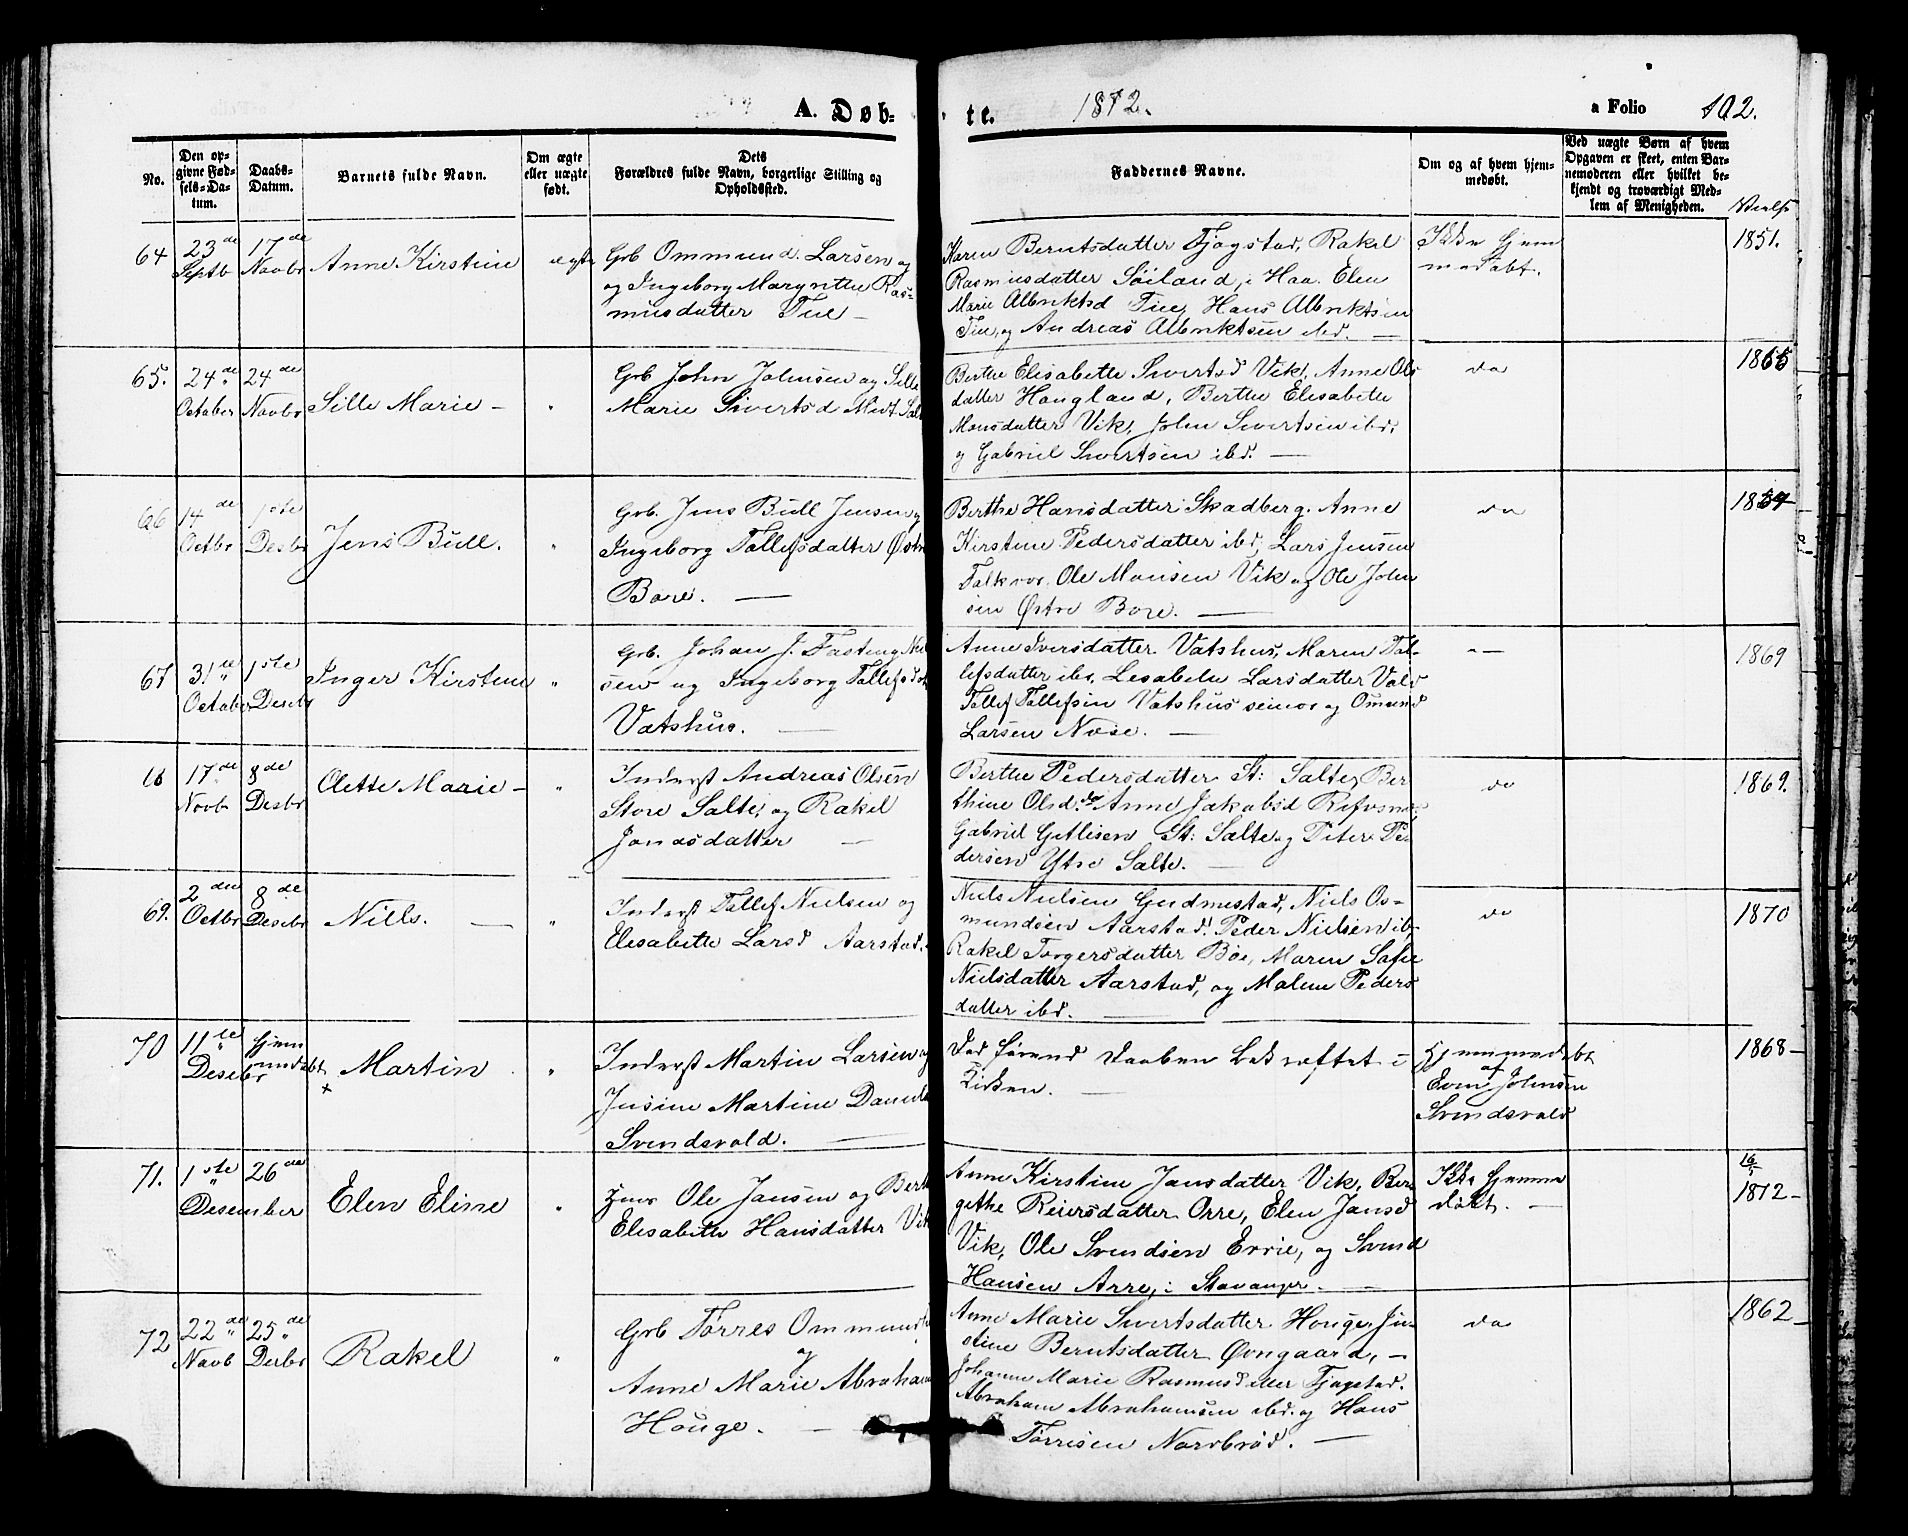 A. Døb-
te.
1872.
a Folio
102.
No.
Den op-
givne Fød-
sels-Da-
tum.
Daabs-
Datum.
Barnets fulde Navn.
Om ægte
eller uægte
født.
Dets
Forældres fulde Navn, borgerlige Stilling og
Opholdssted.
Faddernes Navne.
Om og af hvem hjem-
medøbt.
Ved uægte Børn af hvem
Opgaven er skeet, enten Bar-
nemoderen eller hvilket be-
kjendt og troværdigt Med-
lem af Menigheden.
64
23de
Septb
17de
Novbr
Anne Kirstine
ægte
Grb Ommund Larsen og
og Ingeborg Maryrethe Ras-
musdatter Tue -
Karen Berntsdatter Tjøgstad, Rakel
Rasmusdatter Søiland, i Haa. Elen
Marie Albriktsd Tue, Hans Albriktsen
Tue, og Andreas Albriktsen ibd. -
Ikke hjem
medøbt.
1851.
65.
24de
October
24de
Novbr
Sille Marie -
"
Grb John Johnsen og Sille
Marie Sivertsd Midt Salt
Berthe Elisabethe Sivertsd Vik, Anne Ols
datter Haugland, Berthe Elisabethe
Monsdatter Vik, John Sivertsen ibd.
og Gabriel Sivertsen ibd. -
do
1865
66
14de
Octbr
1ste
Desbr
Jens Bull.
"
Grb. Jens Bull Jensen og
Ingeborg Tollefsdatter Østre
Bore. -
Berthe Hansdatter Skadberg. Anne
Kirstine Pedersdatter ibd, Lars Jensen
Falkvor, Ole Monsen Vik og Ole John
sen Østre Bore. -
do
67
31te
October
1ste
Desebr
Inger Kirstine
"
Grb. Johan J. Fasting Niel
sen og Ingeborg Tollefsdt
Vatshus. -
Anne Iversdatter Vatshus, Maren Tol-
lefsdatter ibd, Lesabeln Larsdatter Vold
Tollef Tollefsen Vatshus senior og Omund
Larsen Nose. -
"-
1869
17de
Novb
8de
Desbr
Olette Marie -
"
Inderst Andreas Olsen
Store Salte, og Rakel
Jonasdatter -
Berthe Pedersdatter St: Salte, Ber
thine Olsd. do Anne Jakobsd Refvsnes
Gabriel Gitlesen St: Salte og Peter Pe-
dersen Ytre Salte. -
do
1869.
69.
2den
Octbr
8de
Desebr
Nills. -
"
Inderst Tollef Nielsen og
Elesabethe Larsd Aarstad.
Niels Nielsen Gudmestad, Niels Os-
mundsen Aarstad. Peder Nielsen ib
Rakel Torgersdatter Bøe, Maren Safie
Nielsdatter Aarstad, og Malene Peders
datter ibd. -
do
1870
70
11te
Desebr
hjem
medøbt
+
Martin
"
Inderst Martin Larsen og
Jusine Martine Daniels
Svendsvold. -
Død førend Daaben bekræftet i
Kirken. -
Hjemmedøbt
af
Even Johnsen
Svendsvold
1868-
71.
1ste
Desember
26de
Elen Eline
"
Ole Jansen og Berthe
Elisabethe Hansdatter Vik
Anne Kirstine Jansdatter Vik, Ber
gethe Reiersdatter Orre, Elen Jansd
Vik, Ole Svendsen Errie, og Svend
Hansen Arre, i Stavanger. -
Ikke hjemme
døbt. -
16/1
1872-
72
22de
Novb
25de
Desbr
Rakel
"
Grb Tørres Ommunds
og
Anne Marie Abraham
Houge. -
Anne Marie Sivertsdatter Houge, Ju-
stine Berntsdatter Øvngaard, -
Johanne Marie Rasmusdatter Tjøgstad.
Abraham Abrahamsen ibd. og Hans
Tørresen Narvbrød. -
do
1862-